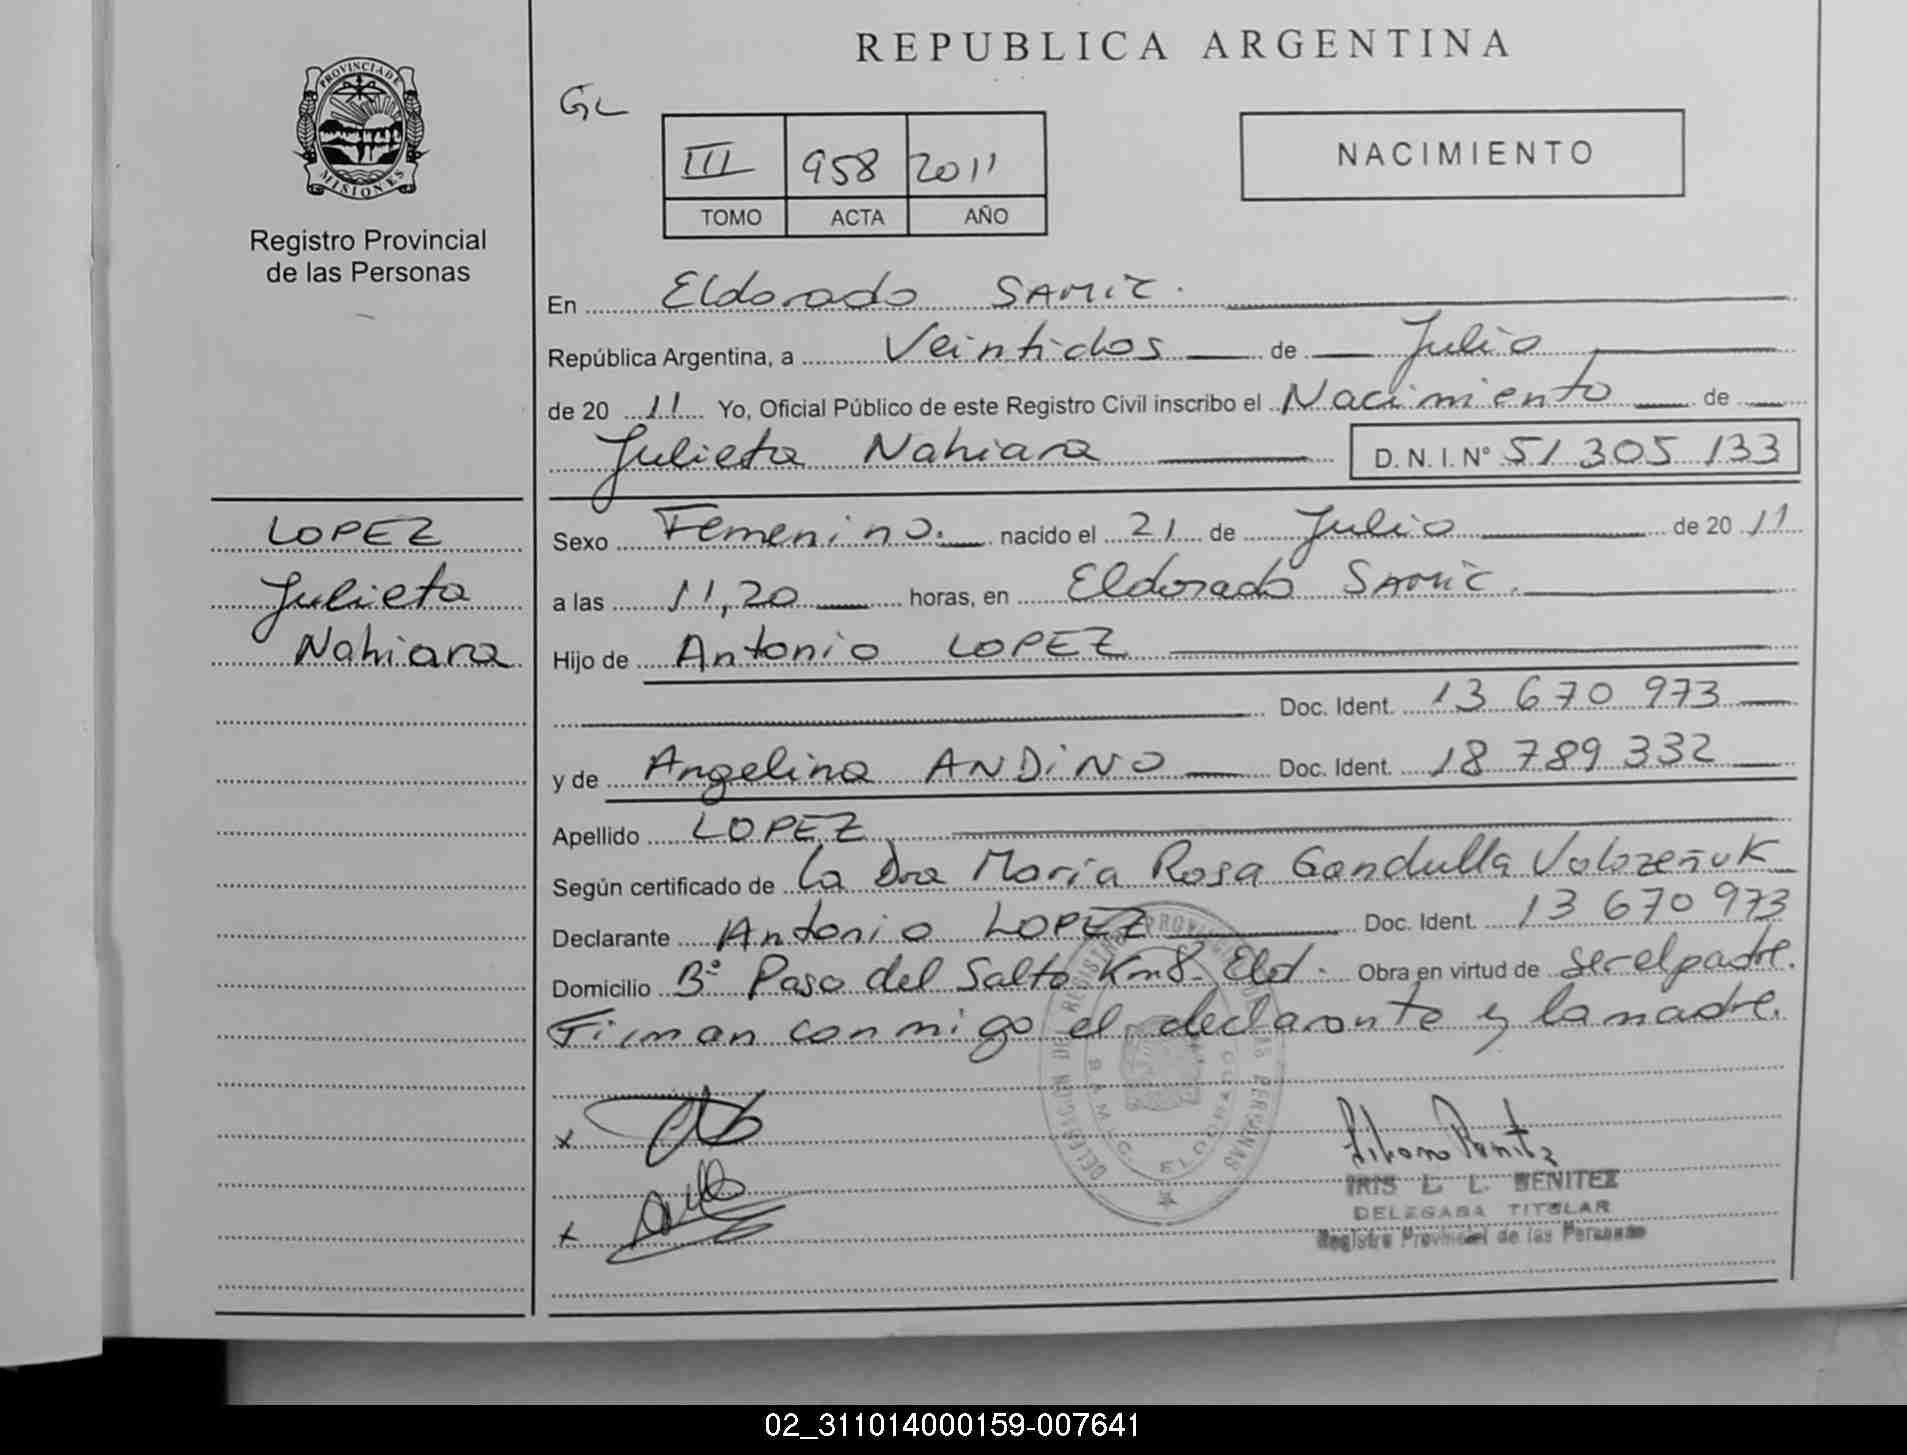 REPUBLICA ARGENTINA
PROVINCIA DE
MISIONES
Registro Provincial
de las Personas
GL
III 958 2011
TOMO ACTA AÑO
NACIMIENTO
En Eldorado SAMIC.
República Argentina, a Veintidos de Julio
de 20 11 Yo, Oficial Público de este Registro Civil inscribo el Nacimiento de
Julieta Nahiara D.N.I.Nº 51 305 133
LOPEZ
Julieta
Nahiara
Sexo Femenino. nacido el 21 de Julio de 20 11
a las 11,20 horas, en Eldorado SAMIC.
Hijo de Antonio LOPEZ
Doc. Ident. 13 670 973
y de Angelina ANDINO Doc. Ident. 18 789 332
Apellido LOPEZ
Según certificado de La Dra Maria Rosa Gandulla
Declarante Antonio LOPEZ Doc. Ident. 13 670 973
Domicilio Bº Paso del Salto Km8. Eld. Obra en virtud de ser el padre.
Firman conmigo el declarante y la madre.
DELEGACION DEL REGISTRO PROVINCIAL DE LAS PERSONAS
S.A.M.I.C. ELDORADO
x
x
IRIS L. L. BENITEZ
DELEGADA TITULAR
Registro Provincial de las Personas
02_311014000159-007641